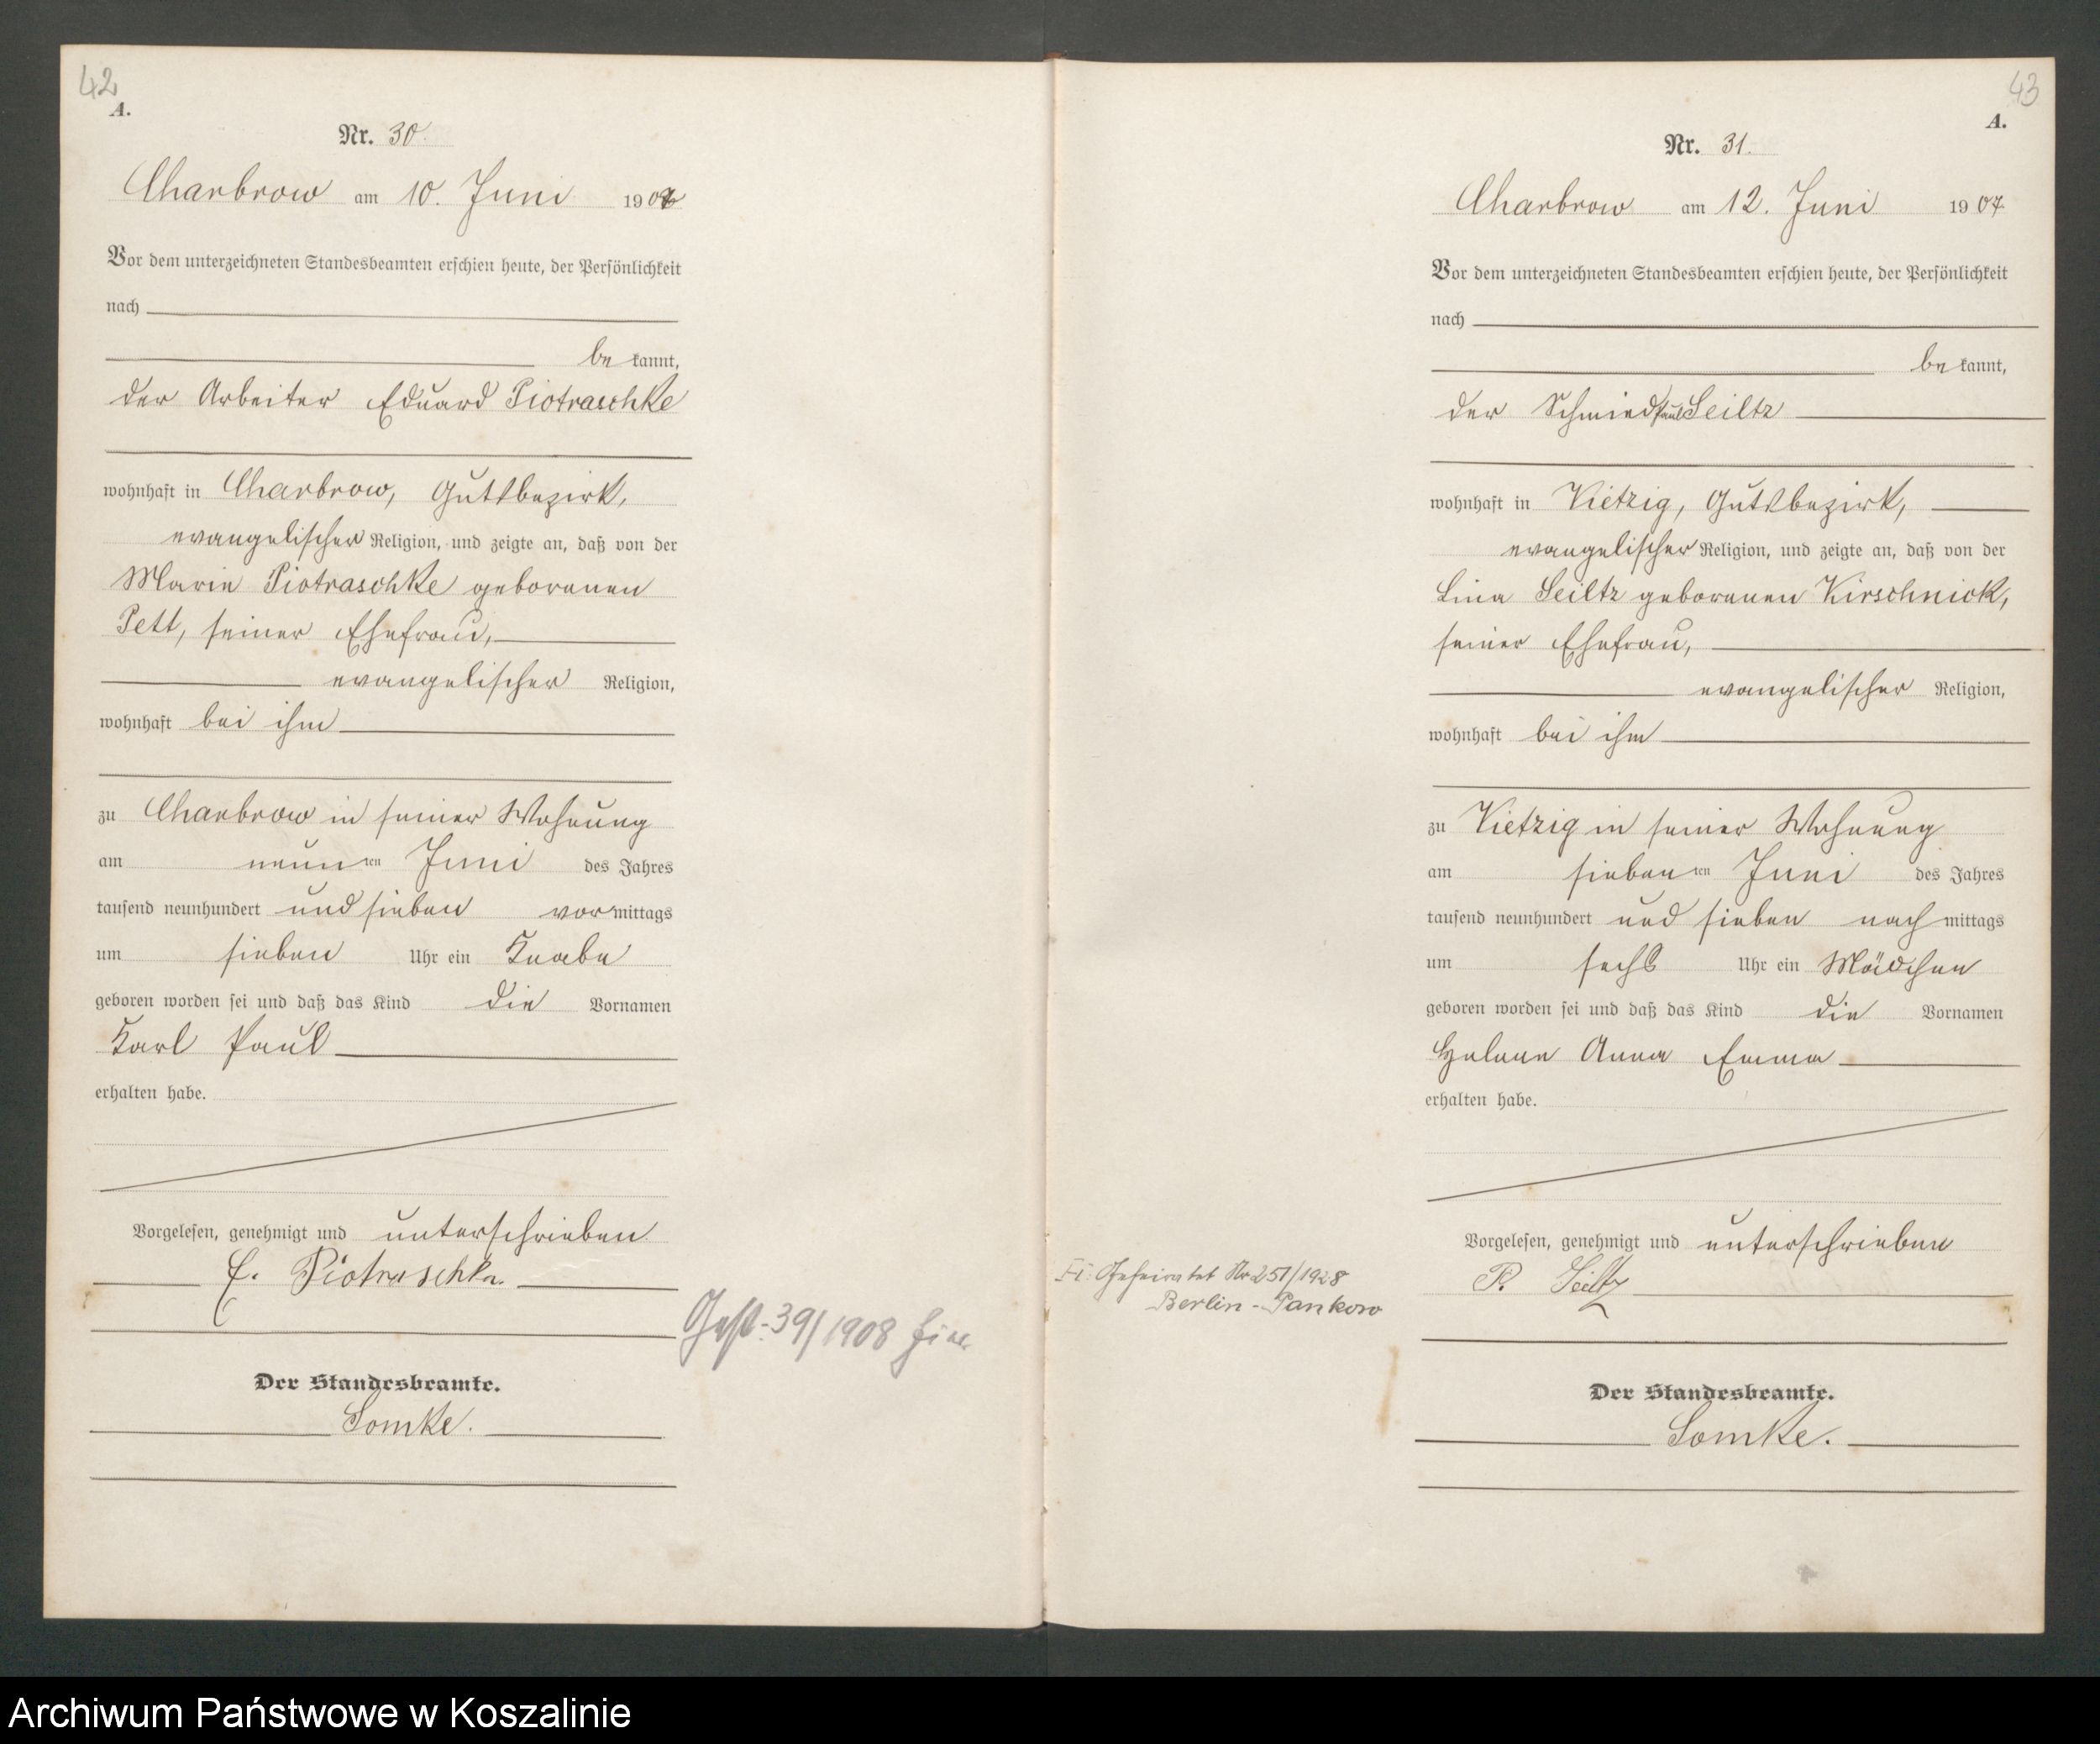 42
A.
Nr. 30.
Charbrow am 10. Juni 1907
Vor dem unterzeichneten Standesbeamten erschien heute, der Persönlichkeit
nach
be kannt,
der Arbeiter Eduard Piotraschke
wohnhaft in Charbrow, Gutsbezirk,
evangelischer Religion, und zeigte an, daß von der
Marie Piotraschke geborenen
Pett, seiner Ehefrau,
evangelischer Religion,
wohnhaft bei ihm
zu Charbrow in seiner Wohnung
am neun ten Juni des Jahres
tausend neunhundert und sieben vor mittags
um sieben Uhr ein Knabe
geboren worden sei und daß das Kind die Vornamen
Karl Paul
erhalten habe.
Vorgelesen, genehmigt und unterschrieben
E. Piotraschke.
Gest. 39/1908 hier
Der Standesbeamte.
Lomke.
43
A.
Nr. 31.
Charbrow am 12. Juni 1907
Vor dem unterzeichneten Standesbeamten erschien heute, der Persönlichkeit
nach
be kannt,
der Schmied Paul Seiltz
wohnhaft in Vietzig, Gutsbezirk,
evangelischer Religion, und zeigte an, daß von der
Lina Seiltz geborenen Kirschnick,
seiner Ehefrau,
evangelischer Religion,
wohnhaft bei ihm
zu Vietzig in seiner Wohnung
am sieben ten Juni des Jahres
tausend neunhundert und sieben nach mittags
um sechs Uhr ein Mädchen
geboren worden sei und daß das Kind die Vornamen
Helene Anna Emma
erhalten habe.
Vorgelesen, genehmigt und unterschrieben
P. Seiltz
Geheiratet Nr 251/1928
Berlin-Pankow
Der Standesbeamte.
Lomke.
Archiwum Państwowe w Koszalinie